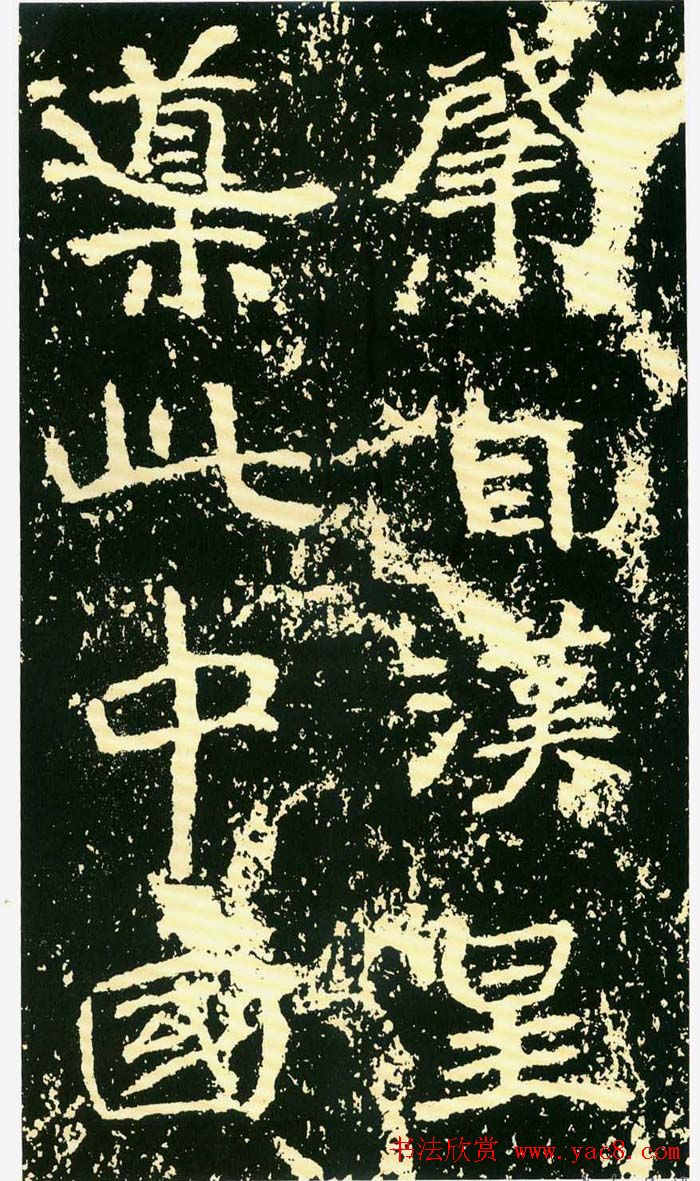 肇自漢皇
導此中國
书法欣赏 www.yac8.com